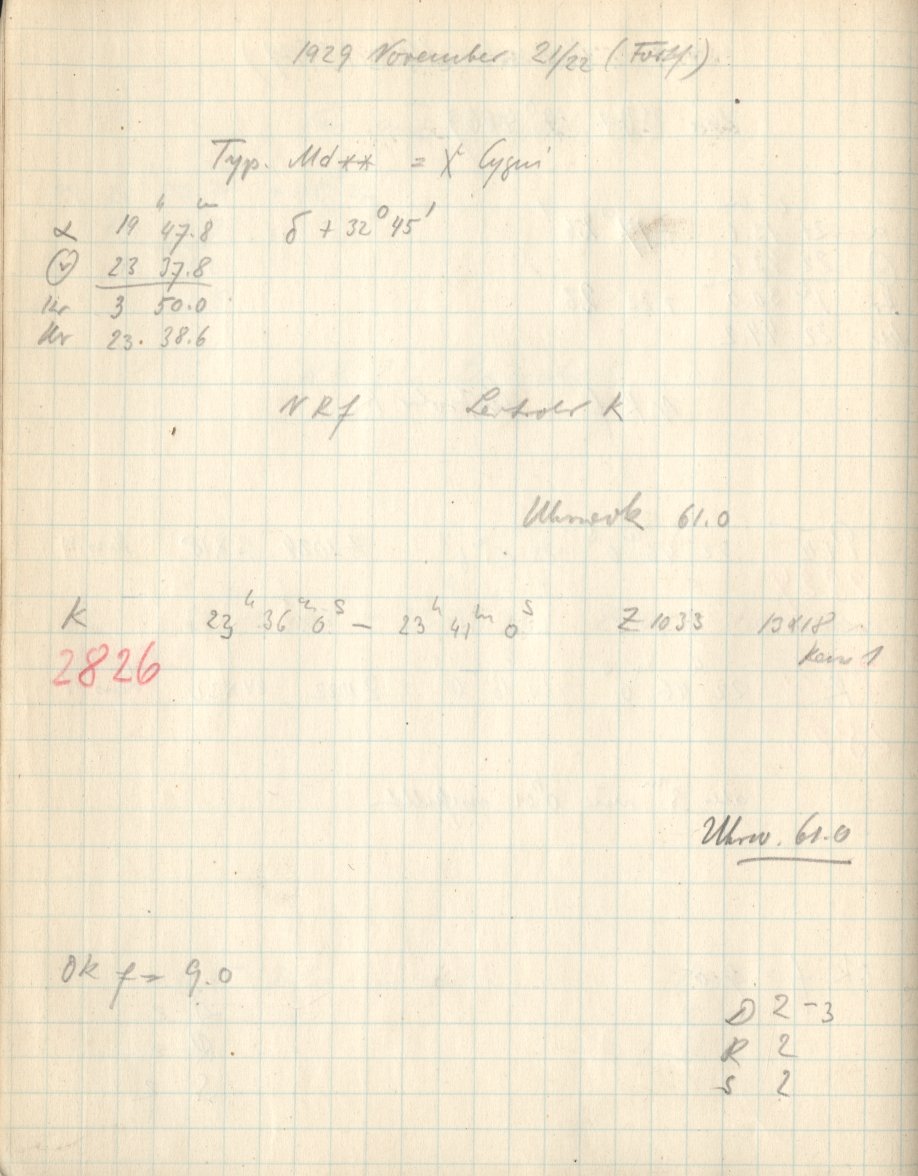 1929 November 21/22 (Forts.)
Typ. Md** = χ Cygni
α 19ʰ 47.8ᵐ δ + 32° 45'
23 37.8
3 50.0
Ur 23. 38.6
NRf K
Uhrwerk 61.0
K 23ʰ 36ᵐ 0ˢ — 23ʰ 41ᵐ 0ˢ Z 1033 13x18
2826 1
Uhrw. 61.0
Ok f = 9.0
D 2-3
R 2
S 2